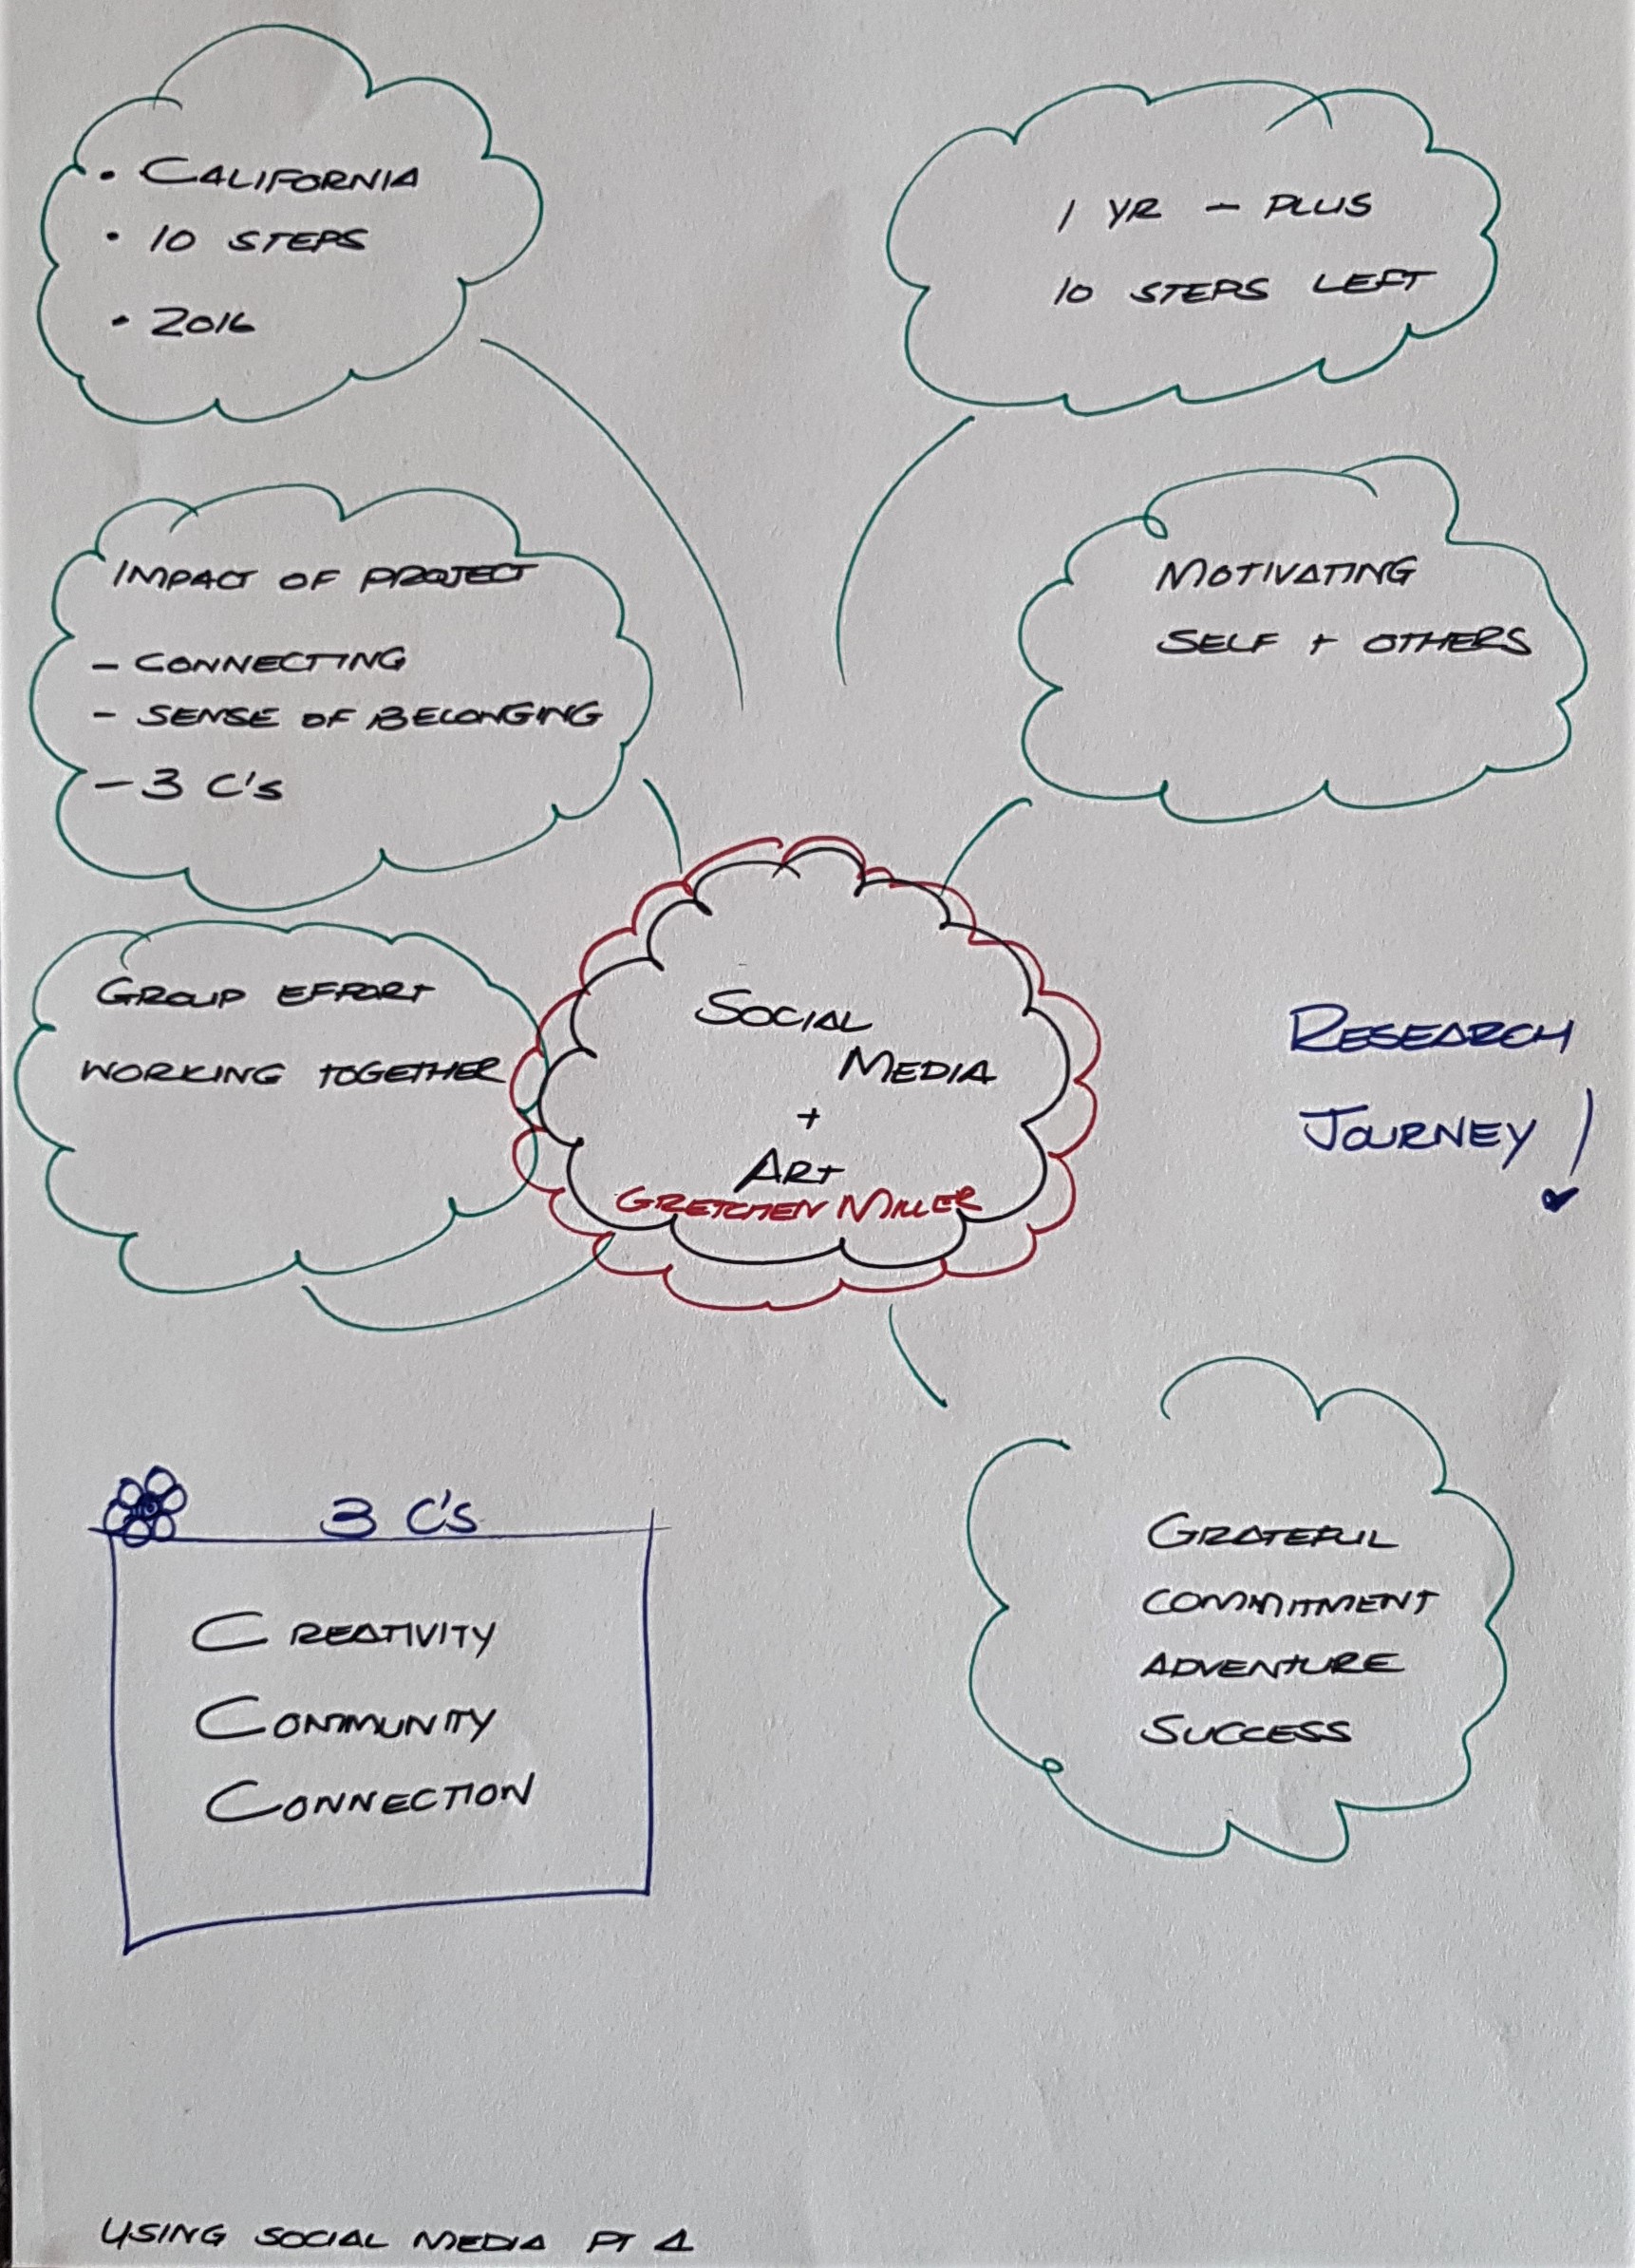 • CALIFORNIA
• 10 STEPS
• 2016
1 YR - PLUS
10 STEPS LEFT
IMPACT OF PROJECT
- CONNECTING
- SENSE OF BELONGING
- 3 C'S
MOTIVATING
SELF + OTHERS
GROUP EFFORT
WORKING TOGETHER
SOCIAL
MEDIA
+
ART
GRETCHEN MILLER
RESEARCH
JOURNEY !
3 C'S
CREATIVITY
COMMUNITY
CONNECTION
GRATEFUL
COMMITMENT
ADVENTURE
SUCCESS
USING SOCIAL MEDIA PT